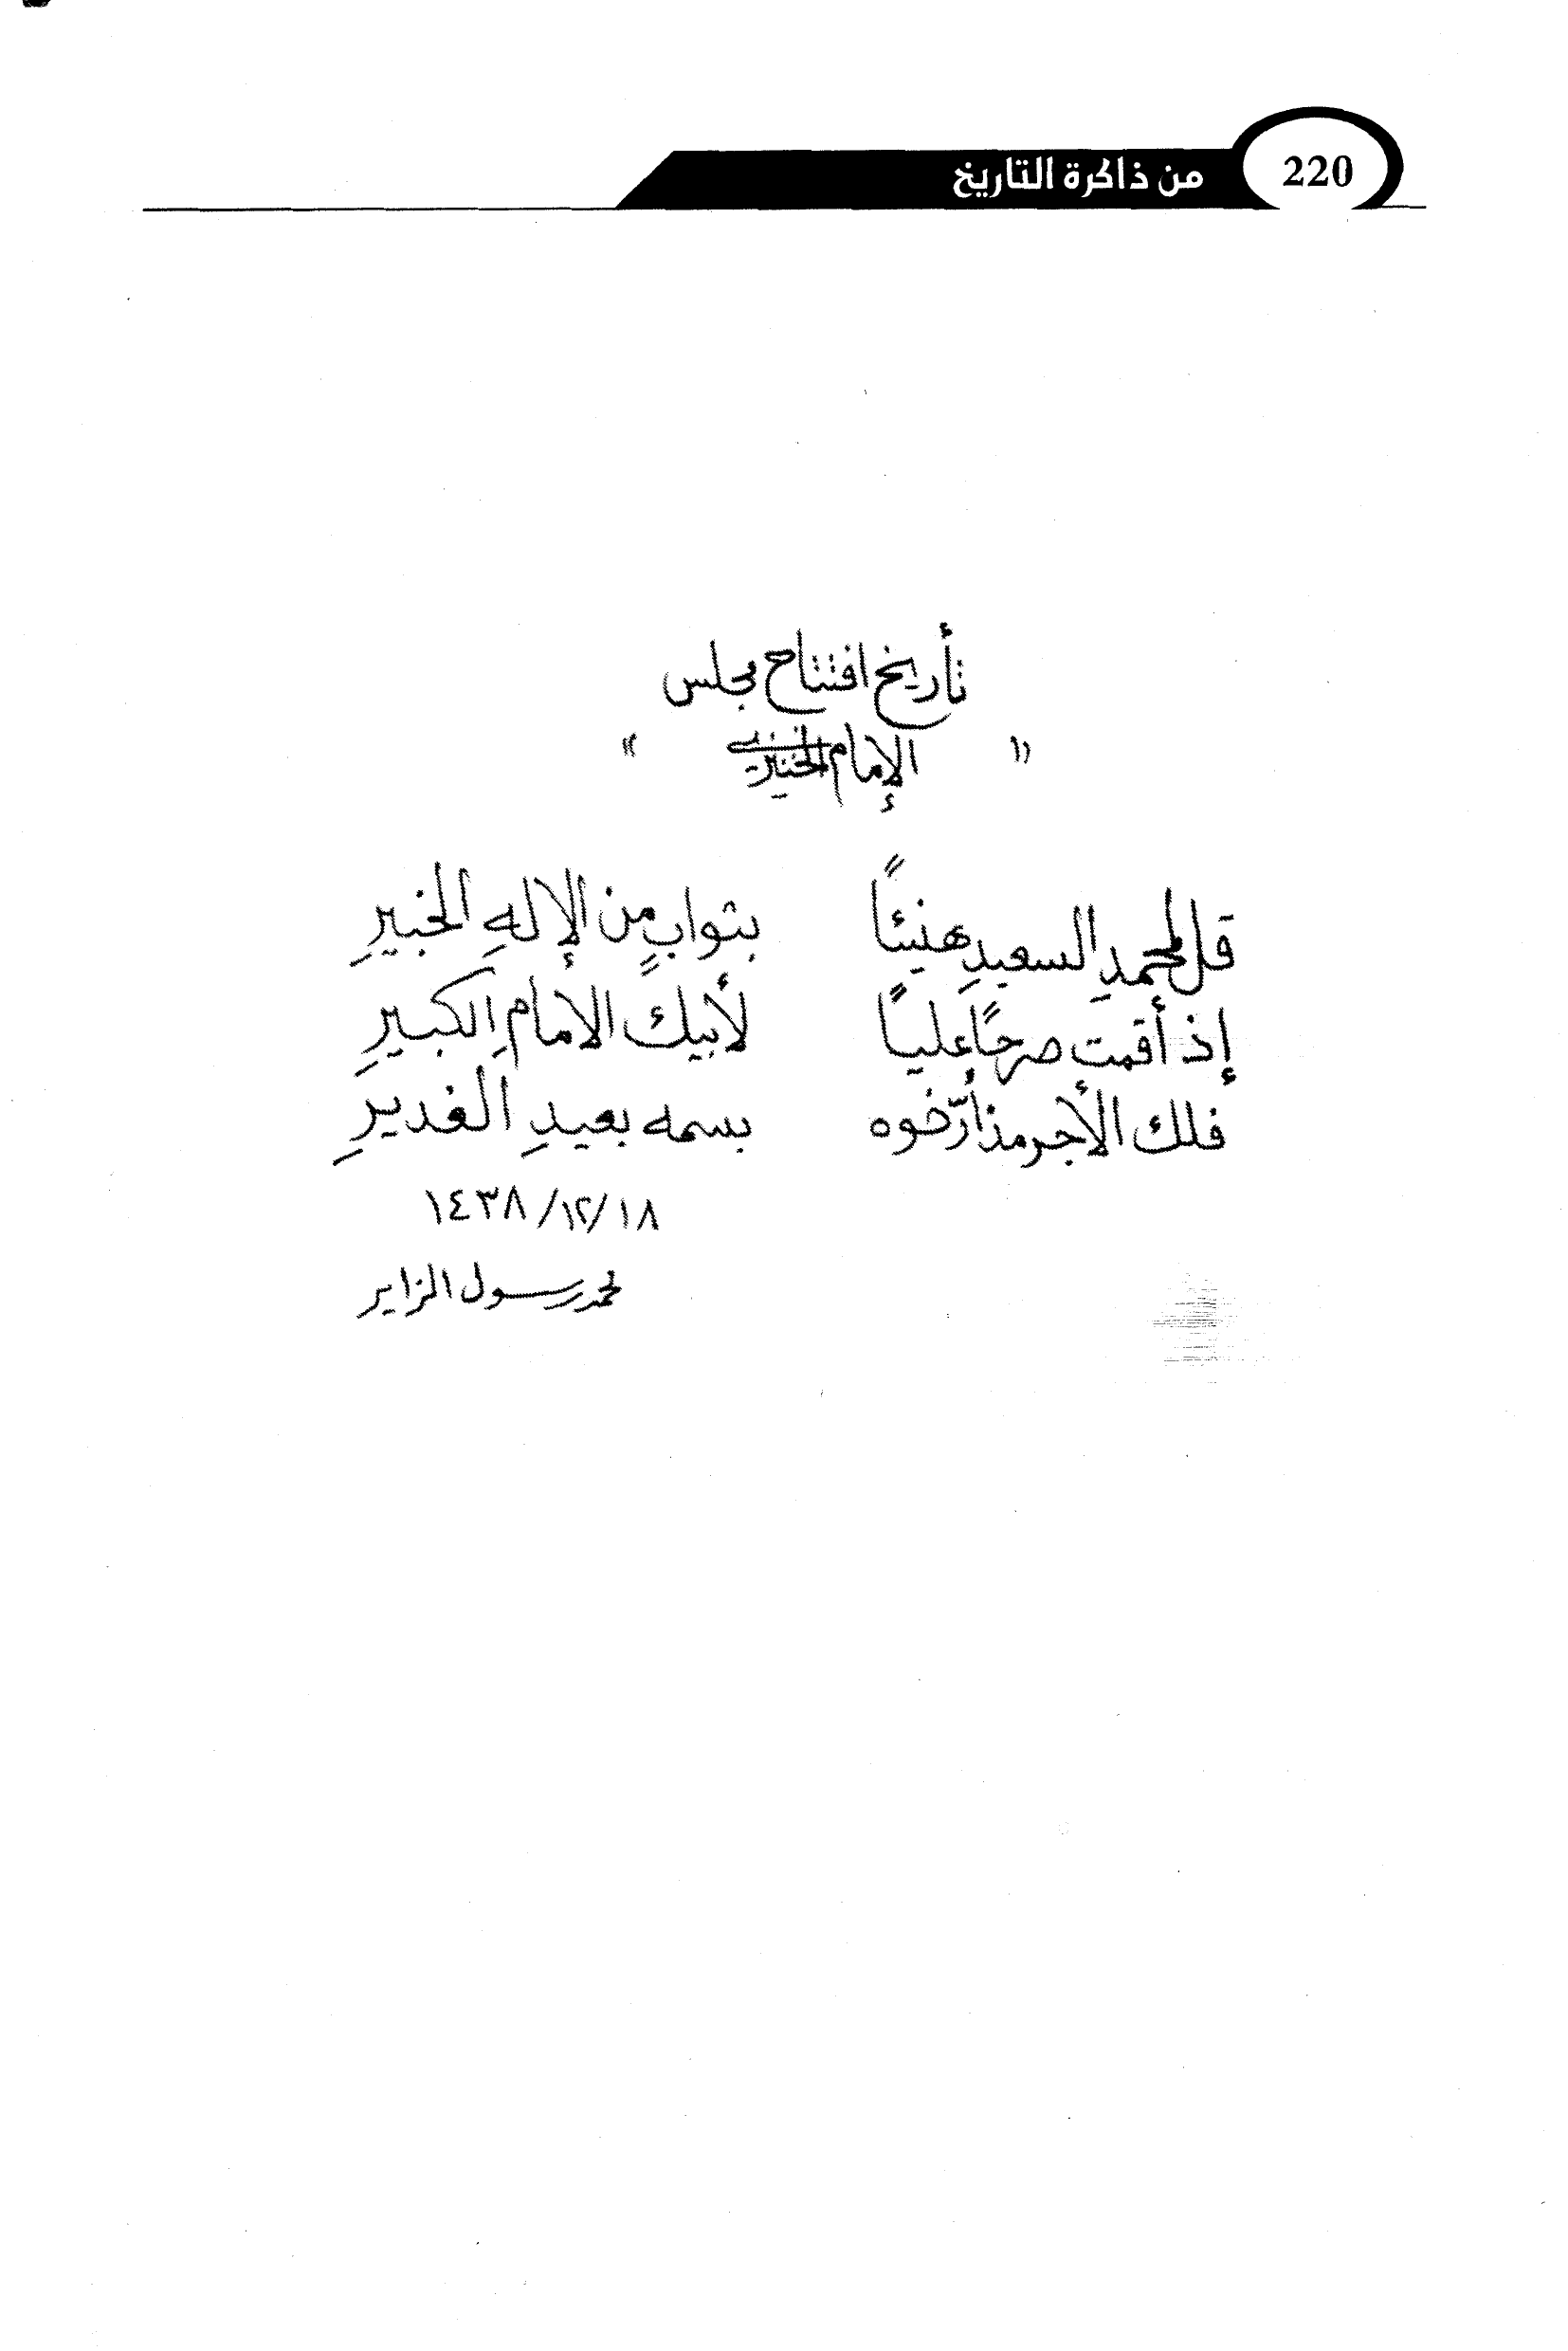 220 من ذاكرة التاريخ
تأريخ افتتاح مجلس
" الإمام الخنيزي "
قل لمحمدِ السعيدِ هنيئاً بثوابٍ من الإلهِ الخبيرِ
إذ أقمت صرحًا علياً لأبيك الامامِ الكبيرِ
فلك الأجر مذ أرّخوه بسمه بعيدِ الغديرِ
١٤٣٨/١٢/١٨
محمد رسول الزاير